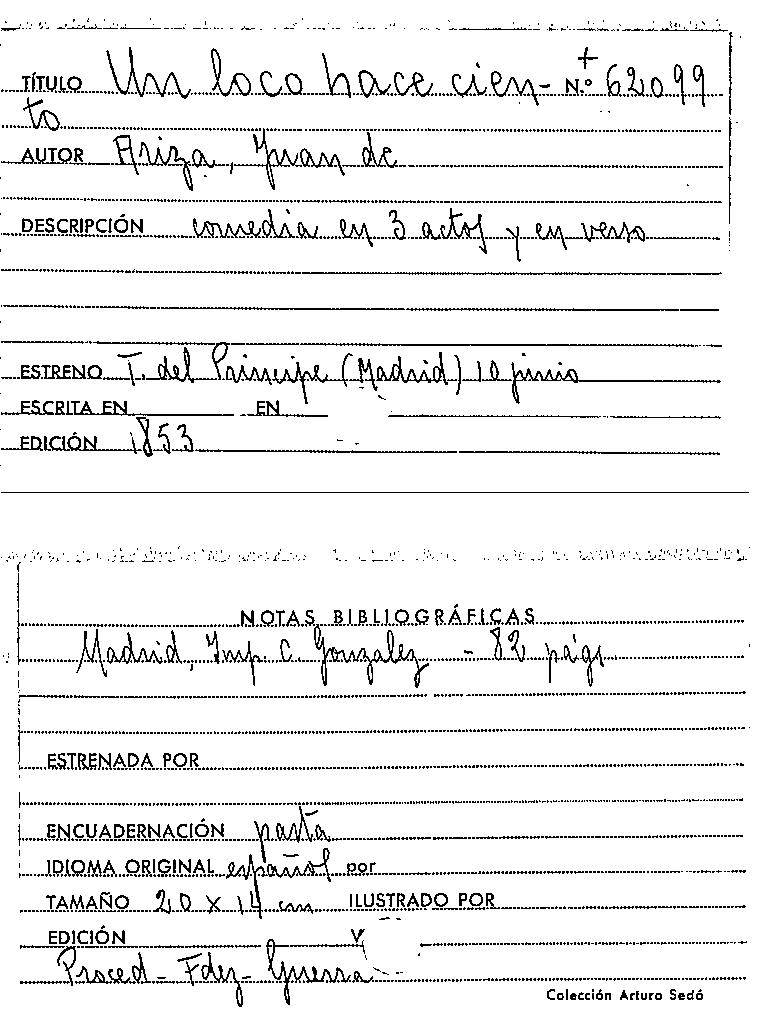 TÍTULO Un loco hace cien- N.º 62099
+
to
AUTOR Ariza, Juan de
DESCRIPCIÓN comedia en 3 actos y en verso
ESTRENO T. del Principe (Madrid) 10 junio
ESCRITA EN EN
EDICIÓN 1853
NOTAS BIBLIOGRÁFICAS
Madrid, Imp. C. Gonzalez - 82 págs
ESTRENADA POR
ENCUADERNACIÓN pasta
IDIOMA ORIGINAL español por
TAMAÑO 20 x 14 cm ILUSTRADO POR
EDICIÓN V
Proced - Fdez - Guerra
Colección Arturo Sedó